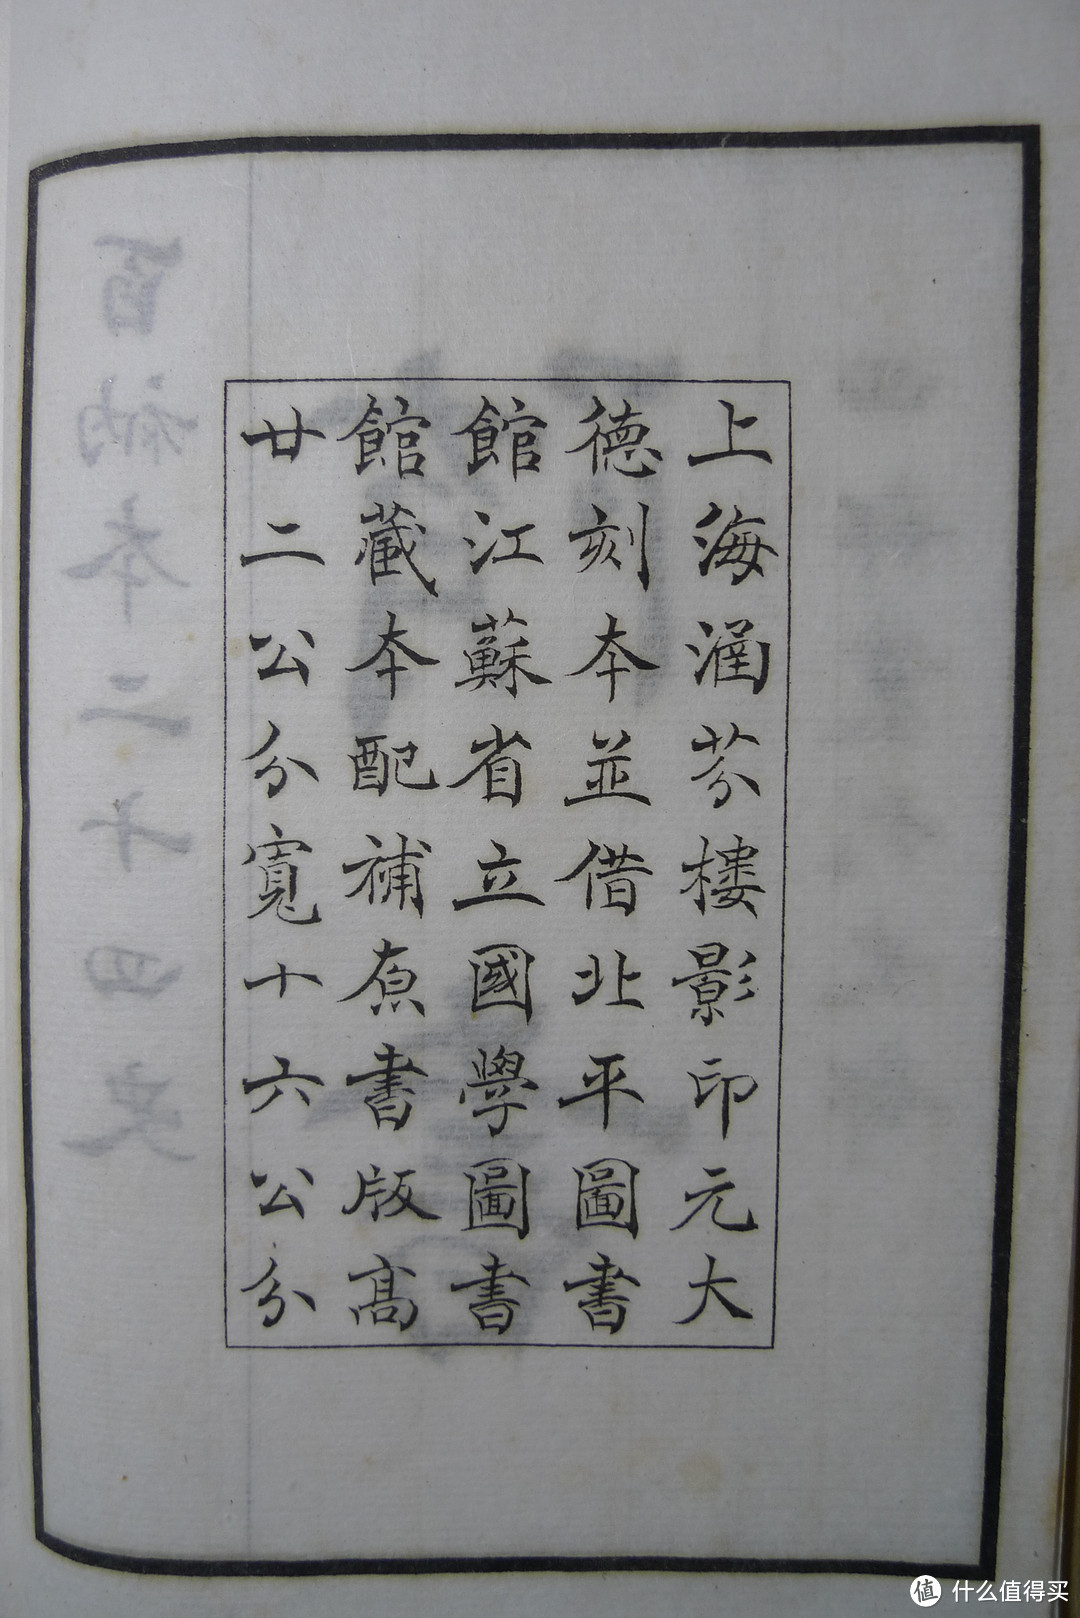 上海涵芬樓影印元大
德刻本並借北平圖書
館江蘇省立國學圖書
館藏本配補原書版高
廿二公分寬十六公分
百衲本二十四史
值 什么值得买